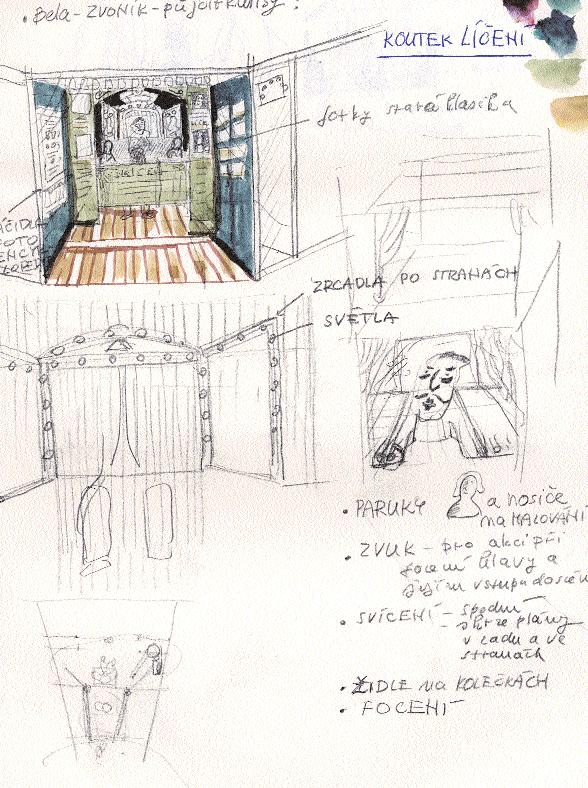 • Bela - ZVONÍK - půjčit kulisy!
KOUTEK LÍČENÍ
fotky stará klasika
ZRCADLA PO STRANÁCH
SVĚTLA
• PARUKY a nosiče
na MALOVÁNÍ
• ZVUK - pro akci při
focení hlavy a
jejím vstupu do
• SVÍCENÍ - spodní
- skrze plány
v zadu a ve
stranách
• ŽIDLE NA KOLEČKÁCH
• FOCENÍ